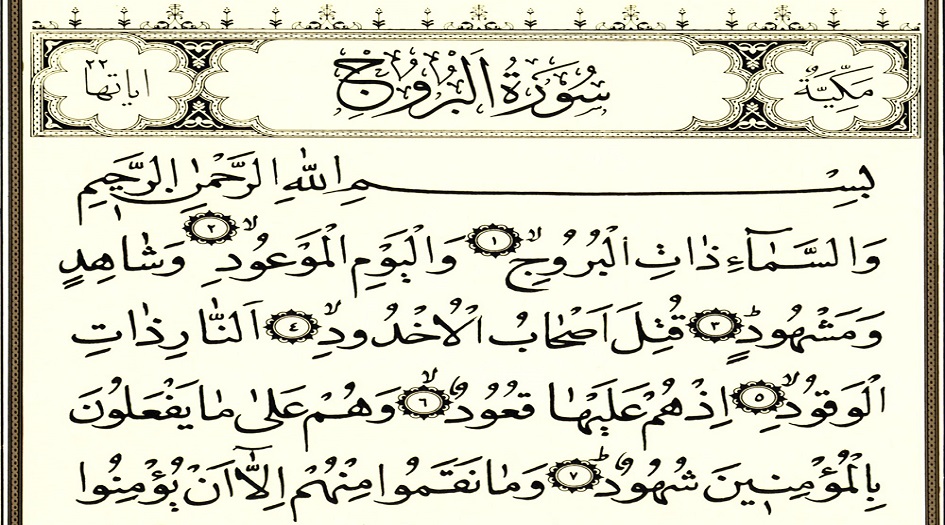 مَكِّيَّةٌ سُورَةُ الْبُرُوجِ اٰيَاتُهَا ٢٢
بِسْمِ اللّٰهِ الرَّحْمٰنِ الرَّحِيمِ
وَالسَّمَٓاءِ ذَاتِ الْبُرُوجِۙ ١ وَالْيَوْمِ الْمَوْعُودِۙ ٢ وَشَاهِدٍ
وَمَشْهُودٍۜ ٣ قُتِلَ اَصْحَابُ الْاُخْدُودِۙ ٤ اَلنَّارِ ذَاتِ
الْوَقُودِۙ ٥ اِذْ هُمْ عَلَيْهَا قُعُودٌۙ ٦ وَهُمْ عَلٰى مَا يَفْعَلُونَ
بِالْمُؤْمِنِينَ شُهُودٌۜ ٧ وَمَا نَقَمُوا مِنْهُمْ اِلَّٓا اَنْ يُؤْمِنُوا